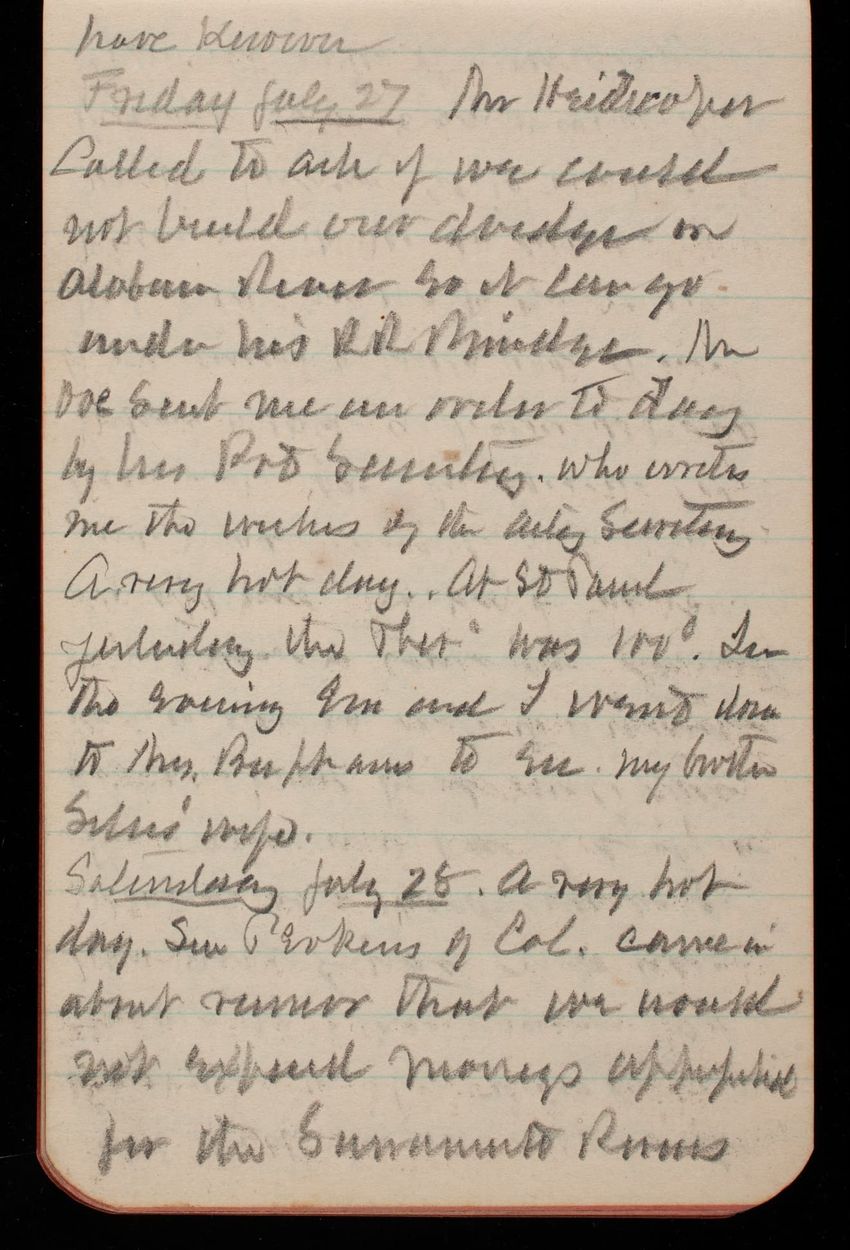 have known
Friday July 27 Mr Heidecoper
Called to ask if we could
not build our dredge on
Alabam River so it can go
under his RR Bridge. Mr
Doe sent me an order to day
by his Prt Secretary. who writes
me the wishes of the actg Secretary
A very hot day.. At St Paul
yesterday the Ther° was 100°. In
the evening Em and I went down
to Mrs. to see. my brother
Silas' wife.
Saturday July 28. A very hot
day. Sen Perkins of Cal. came in
about rumor that we would
not expend moneys appropriated
for the Sacramento River